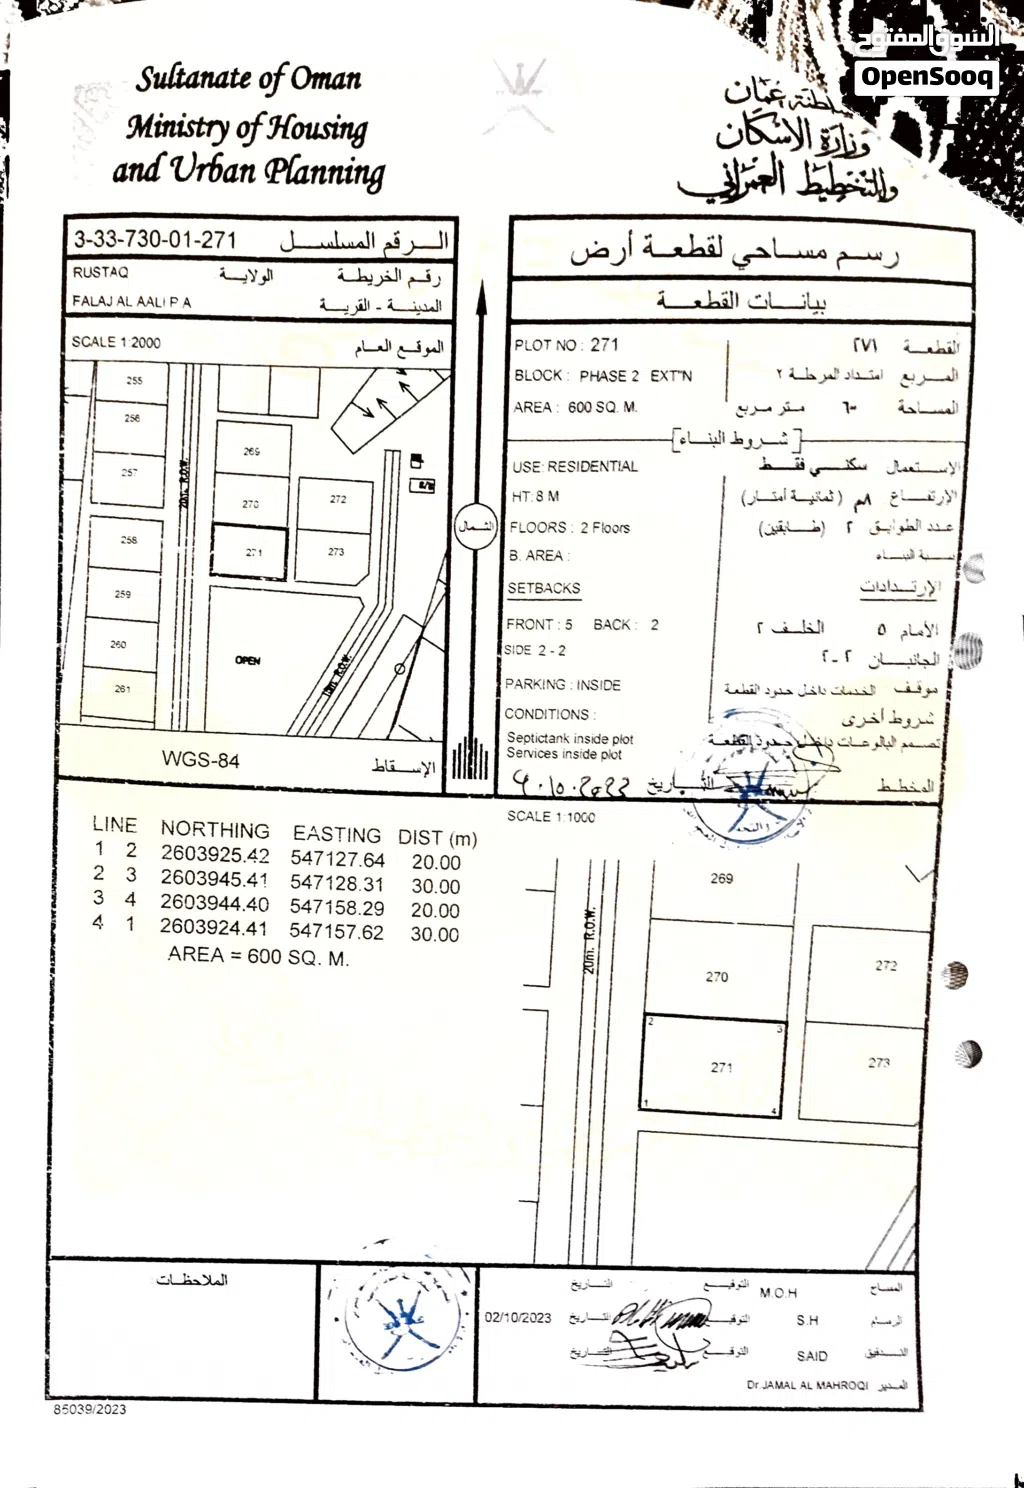 السوق المفتوح
OpenSooq
Sultanate of Oman
Ministry of Housing
and Urban Planning
سلطنة عمان
وزارة الإسكان
والتخطيط العمراني
3-33-730-01-271 الرقم المسلسل
RUSTAQ الولاية رقم الخريطة
FALAJ AL AALI P A المدينة - القرية
SCALE 1:2000 الموقع العام
255
256
257
258
259
260
261
269
270
271
272
273
20m. R.O.W.
OPEN
15m R.O.W.
WGS-84 الإسقاط
الشمال
رسم مساحي لقطعة أرض
بيانات القطعة
PLOT NO : 271 القطعة ٢٧١
BLOCK : PHASE 2 EXT'N المربع امتداد المرحلة ٢
AREA : 600 SQ. M. المساحة ٦٠٠ متر مربع
[شروط البناء]
USE: RESIDENTIAL الإستعمال سكني فقط
HT: 8 M الإرتفاع ٨م (ثمانية أمتار)
FLOORS : 2 Floors عدد الطوابق ٢ (طابقين)
B. AREA : نسبة البناء
SETBACKS الإرتدادات
FRONT : 5 BACK : 2 الأمام ٥ الخلف ٢
SIDE 2 - 2 الجانبان ٢-٢
PARKING : INSIDE موقف الخدمات داخل حدود القطعة
CONDITIONS : شروط أخرى
Septictank inside plot تصمم البالوعات داخل حدود القطعة
Services inside plot
المخطط التاريخ
LINE NORTHING EASTING DIST (m)
1 2 2603925.42 547127.64 20.00
2 3 2603945.41 547128.31 30.00
3 4 2603944.40 547158.29 20.00
4 1 2603924.41 547157.62 30.00
AREA = 600 SQ. M.
SCALE 1:1000
269
270
271
272
273
20m. R.O.W.
1
2
3
4
الملاحظات :
المساح M.O.H التوقيع التاريخ
الرسام S.H التوقيع التاريخ 02/10/2023
التدقيق SAID التوقيع التاريخ
المدير Dr.JAMAL AL MAHROQI
85039/2023